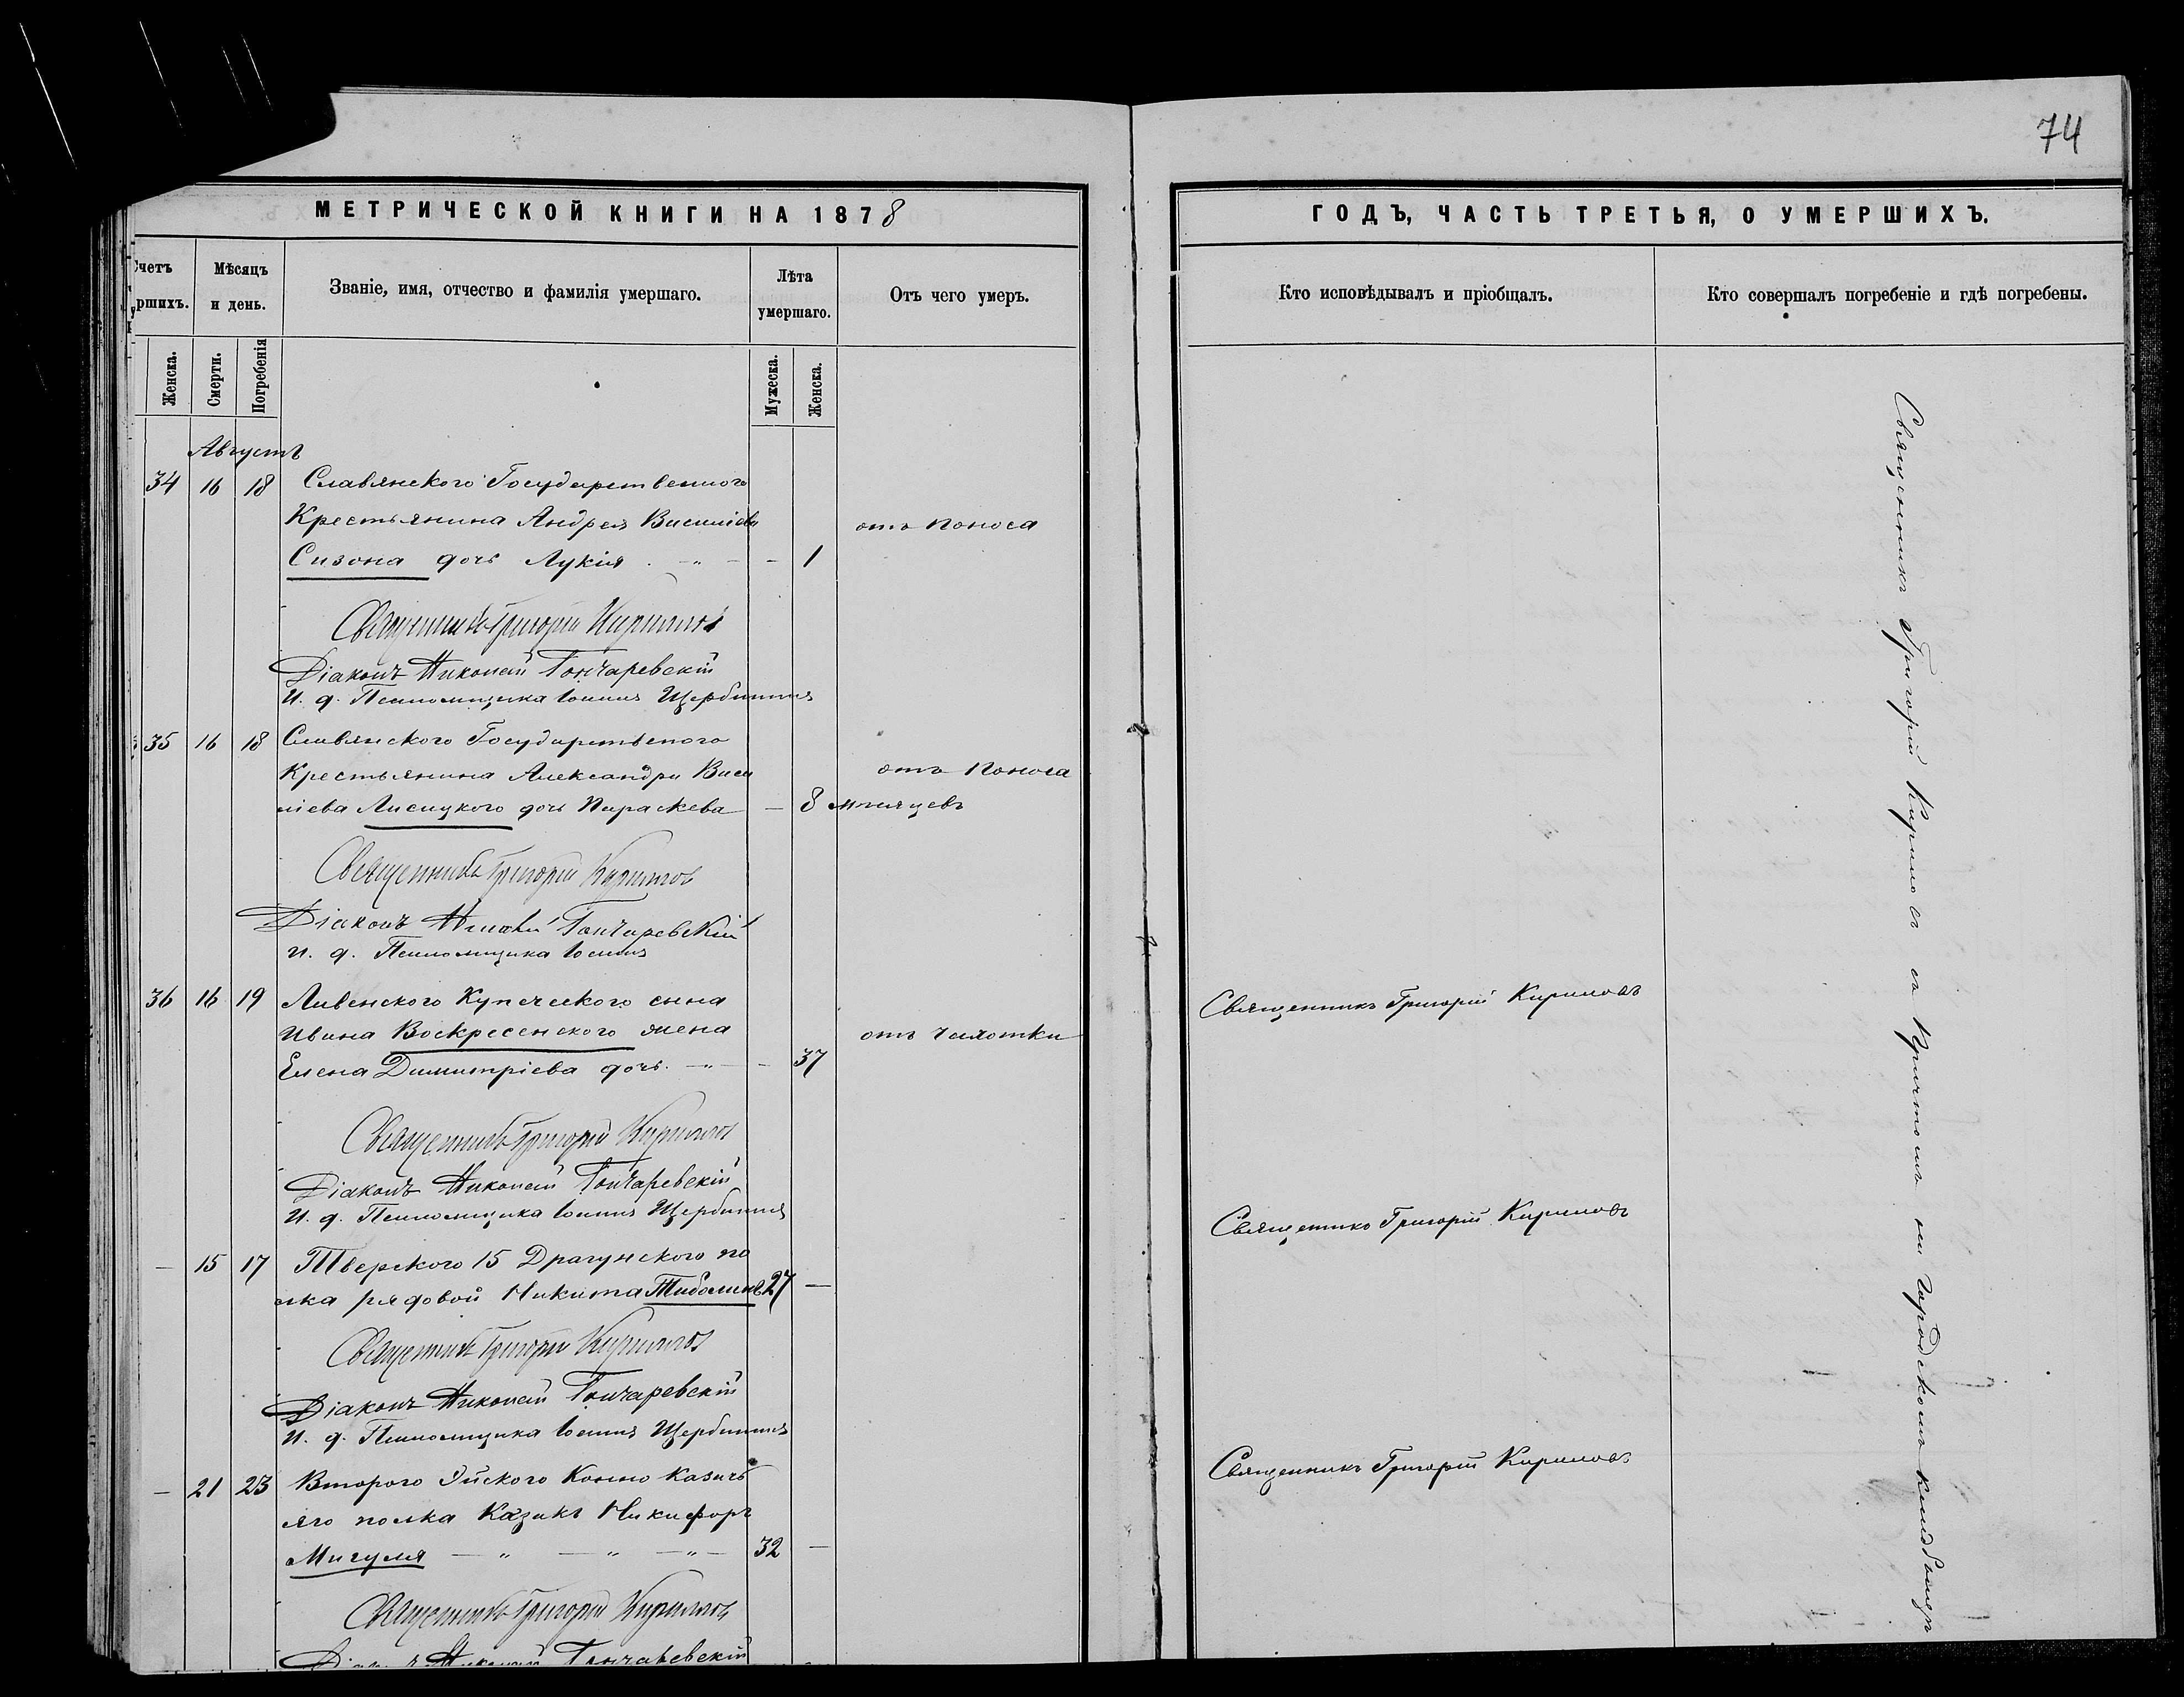 74
МЕТРИЧЕСКОЙ КНИГИ НА 1878
ГОДЪ, ЧАСТЬ ТРЕТЬЯ, О УМЕРШИХЪ.
Счетъ
ршихъ.
Мѣсяцъ
и день.
Званіе, имя, отчество и фамилія умершаго.
Лѣта
умершаго.
Отъ чего умеръ.
Кто исповѣдывалъ и пріобщалъ.
Кто совершалъ погребеніе и гдѣ погребены.
Женска.
Смерти.
Погребенія
Мужеска.
Женска.
Августъ
34 16 18 Славянского Государственного
Крестьянина Андрея Василіева отъ поноса
Сизона дочь Лукія - „ - - 1
Священникъ Григорій Кириловъ
Діаконъ Николай Гончаревскій
И. д. Псаломщика Іоаннъ Щербина
35 16 18 Славянского Государственого
Крестьянина Александра Васи отъ поноса
ліева Лисицкого дочь Параскева — 8 мѣсяцевъ
Священникъ Григорій Кириловъ
Діаконъ Николай Гончаревскій
И. д. Псаломщика Іоаннъ
36 16 19 Ливенского Купеческого сына
Ивана Воскресенского жена отъ чахотки
Елена Димитріева дочь. - „ - - 37
Священникъ Григорій Кириловъ
Священникъ Григорій Кириловъ
Діаконъ Николай Гончаревскій
И. д. Псаломщика Іоаннъ Щербина
— 15 17 Тверского 15 Драгунского по
лка рядовой Никита 27 —
Священникъ Григорій Кириловъ
Священникъ Григорій Кириловъ
Діаконъ Николай Гончаревскій
И. д. Псаломщика Іоаннъ Щербина
— 21 23 Второго Конно Казачь
яго полка Казакъ Никифоръ
Мигуля — „ — „ — „ — 32 —
Священникъ Григорій Кириловъ
Священникъ Григорій Кириловъ
Діаконъ Николай Гончаревскій
Священникъ Григорій Кириловъ съ Причтомъ на Городскомъ кладбищѣ